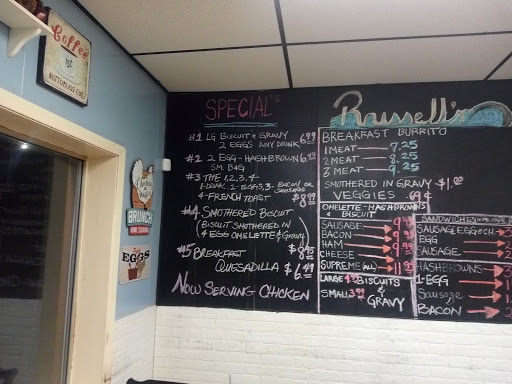 Coffee
BOTTOMLESS CUP
BRUNCH
EGGS
SPECIAL'S
#1 LG BISCUIT & GRAVY
2 EGGS ANY DRINK 6.99
#2 2 EGG - HASHBROWN
SM. B&G
#3 THE 1,2,3,4
1-DRINK 2-EGGS, 3- BACON OR SAUSAGE
4-FRENCH TOAST $8.99
#4 SMOTHERED BISCUIT
(BISCUIT SMOTHERED IN
4 EGG OMELETTE & GRAVY)
#5 BREAKFAST
QUESADILLA $6.49
NOW SERVING CHICKEN
Russell's
BREAKFAST BURRITO
1 MEAT 7.25
2 MEAT 8.25
3 MEAT 9.25
SMOTHERED IN GRAVY $1.00
VEGGIES 69¢
OMELETTE - HASHBROWNS
& BISCUIT
SAUSAGE 9.99
BACON 9.99
HAM 9.99
CHEESE 9.99
SUPREME (ALL) 11.99
LARGE BISCUITS
SMALL 3.99 & GRAVY
SANDWICHES
SAUSAGE EGG & CH
EGG
SAUSAGE
HASHBROWNS
1-EGG
Sausage
BACON